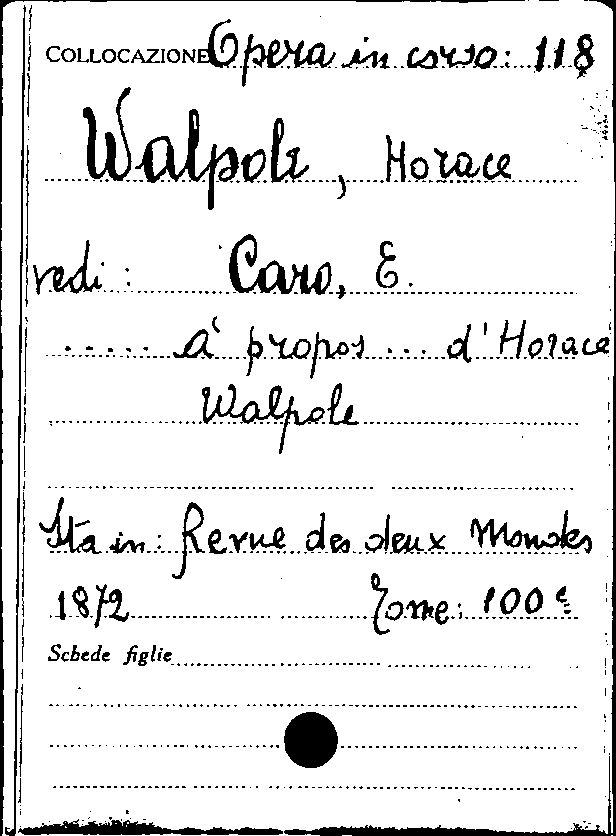 COLLOCAZIONE Opera in corso: 118
Walpole, Horace
vedi: Caro, E.
..... à propos ... d'Horace
Walpole
Sta in: Revue des deux Mondes
1872 Tome: 100e
Schede figlie